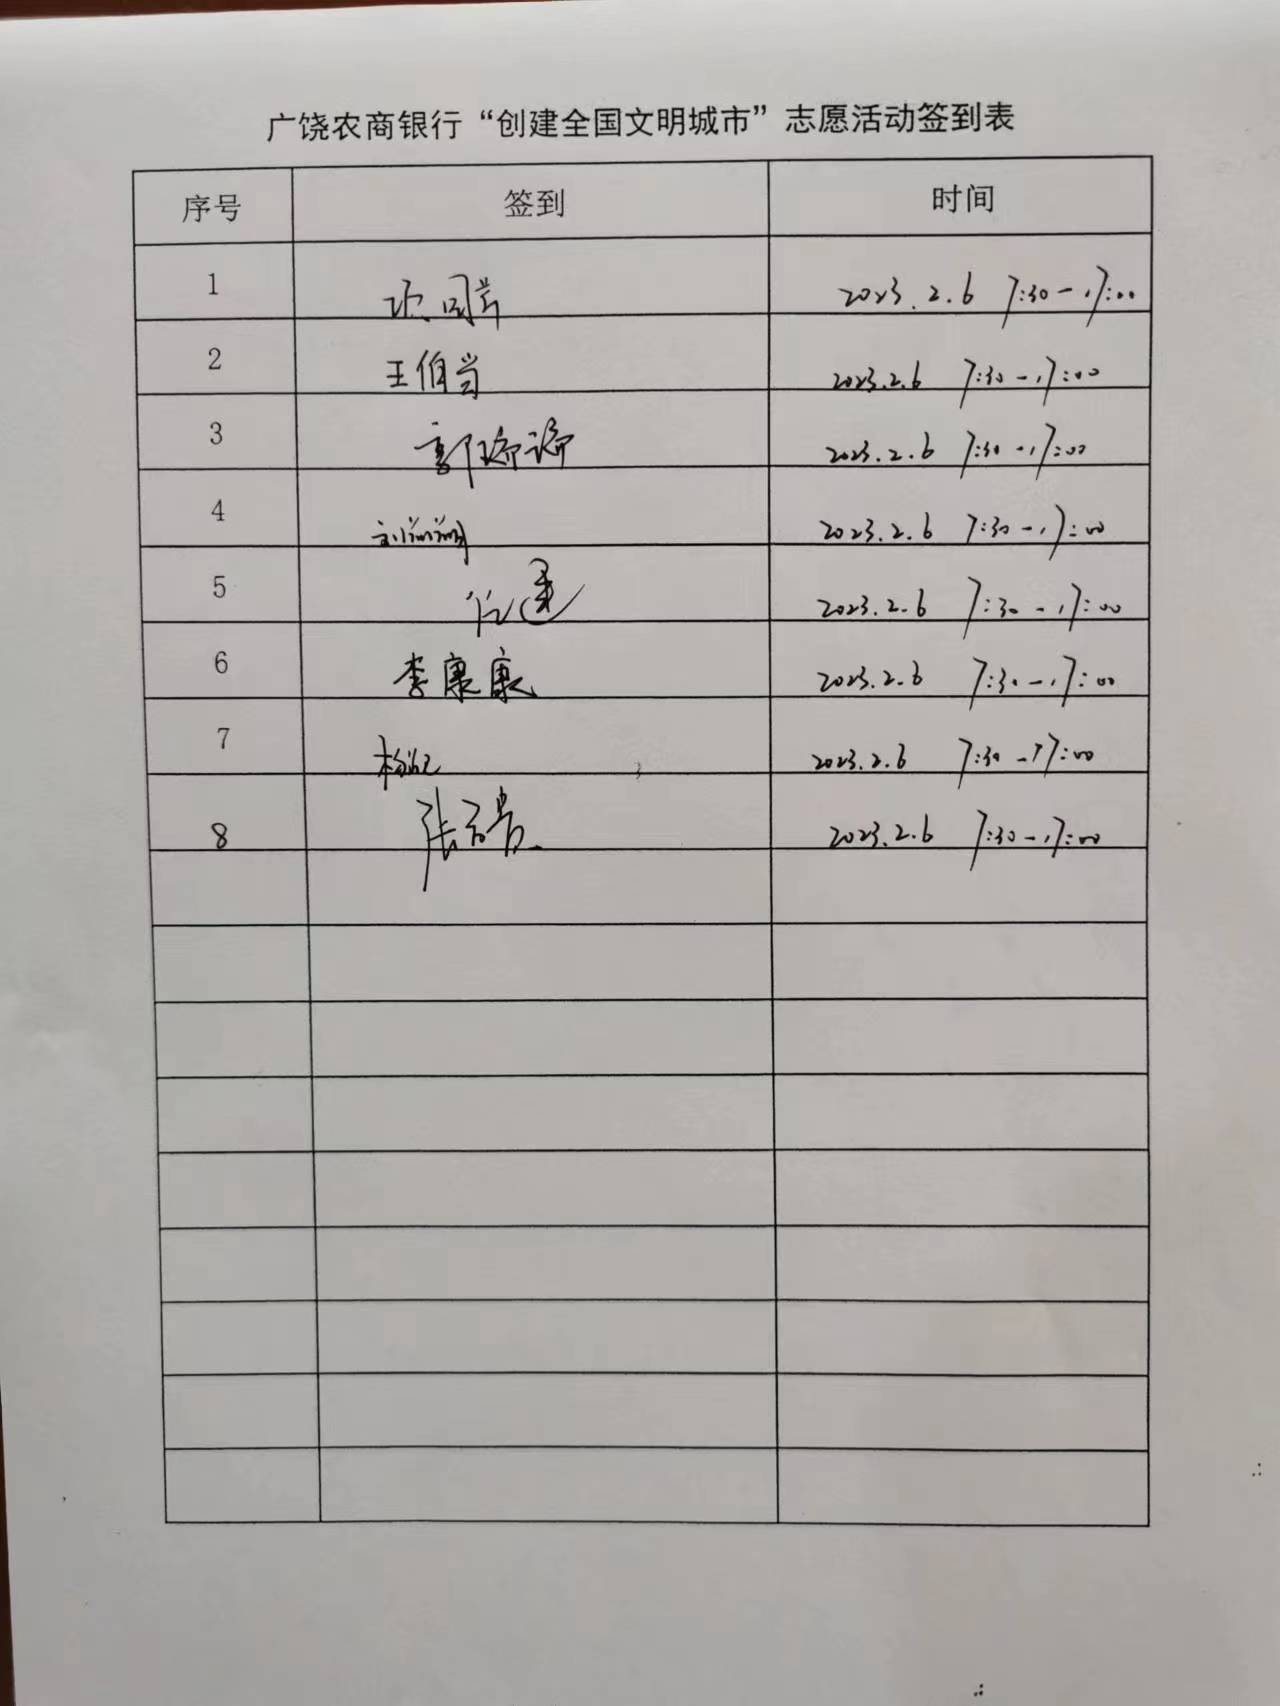 广饶农商银行“创建全国文明城市”志愿活动签到表
序号 签到 时间
1 2023.2.6 7:30-17:00
2 王伯当 2023.2.6 7:30-17:00
3 郭 2023.2.6 7:30-17:00
4 刘 2023.2.6 7:30-17:00
5 任 2023.2.6 7:30-17:00
6 李康康 2023.2.6 7:30-17:00
7 杨 2023.2.6 7:30-17:00
8 张 2023.2.6 7:30-17:00